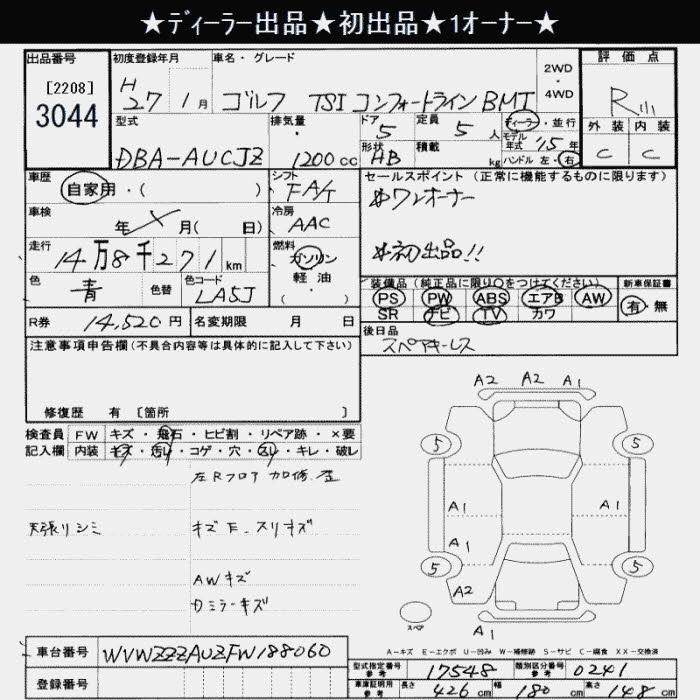 ★ディーラー出品★初出品★1オーナー★
出品番号
[2208]
3044
初度登録年月
H 27 1月
車名・グレード
ゴルフ TSI コンフォートライン BMT
2WD・4WD
評価点
R
外装 内装
C C
型式
DBA-AUCJZ
排気量
1200cc
ドア
5
形状
HB
定員
5人
積載
kg
ディーラー・並行
モデル年式 '15年
ハンドル 左・右
車歴
自家用・( )
シフト
FA/T
セールスポイント(正常に機能するものに限ります)
※ワンオーナー
※初出品!!
車検
年 月( 日)
冷房
AAC
走行
14万8千271km
燃料
ガソリン
軽油
( ・ )
色
青
色替
色コード
LA5J
装備品(純正品に限り○をつけてください)
PS PW ABS エアB AW
SR ナビ TV カワ
新車保証書
有・無
R券 14,520円
名変期限 月 日
後日品
スペアキーレス
注意事項申告欄(不具合内容等は具体的に記入して下さい)
修復歴 有 [箇所 ]
検査員 FW キズ・飛石・ヒビ割・リペア跡・×要
記入欄 内装 キズ・汚レ・コゲ・穴・スレ・キレ・破レ
左Rフロア 加修、歪
天張リシミ
キズ E、スリキズ
AWキズ
Dミラーキズ
A2 A2 A1
5 5
A1 A1
A1
5 5
A2
A1
スペア
A-キズ E-エクボ U-凹み W-補修跡 S-サビ C-腐食 XX-交換済
車台番号 WVWZZZAUZFW188060
登録番号
型式指定番号 参考 17548
類別区分番号 参考 0241
車庫証明用 参考 長さ 426cm 幅 180cm 高さ 148cm